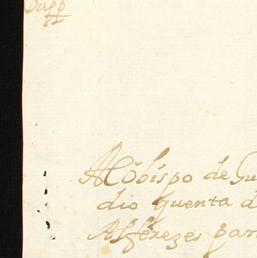 Al obispo de Gu
dio quenta d
Alferezes par